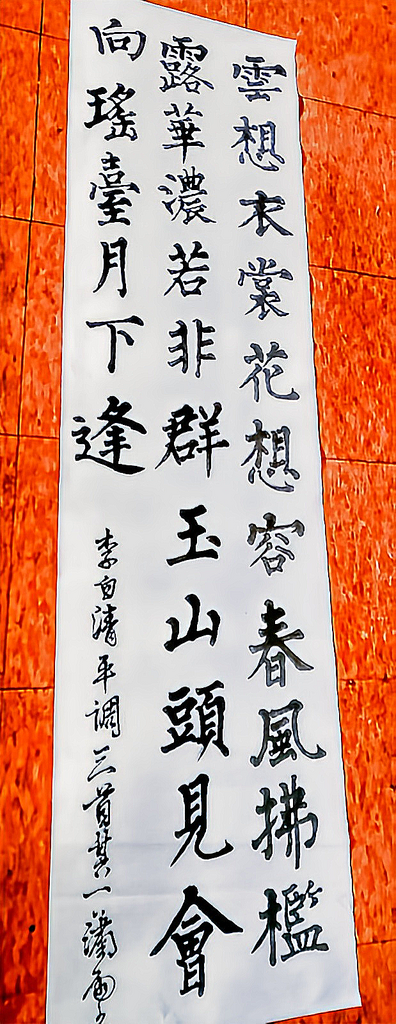 雲想衣裳花想容春風拂檻
露華濃若非群玉山頭見會
向瑤臺月下逢
李白清平調三首其一